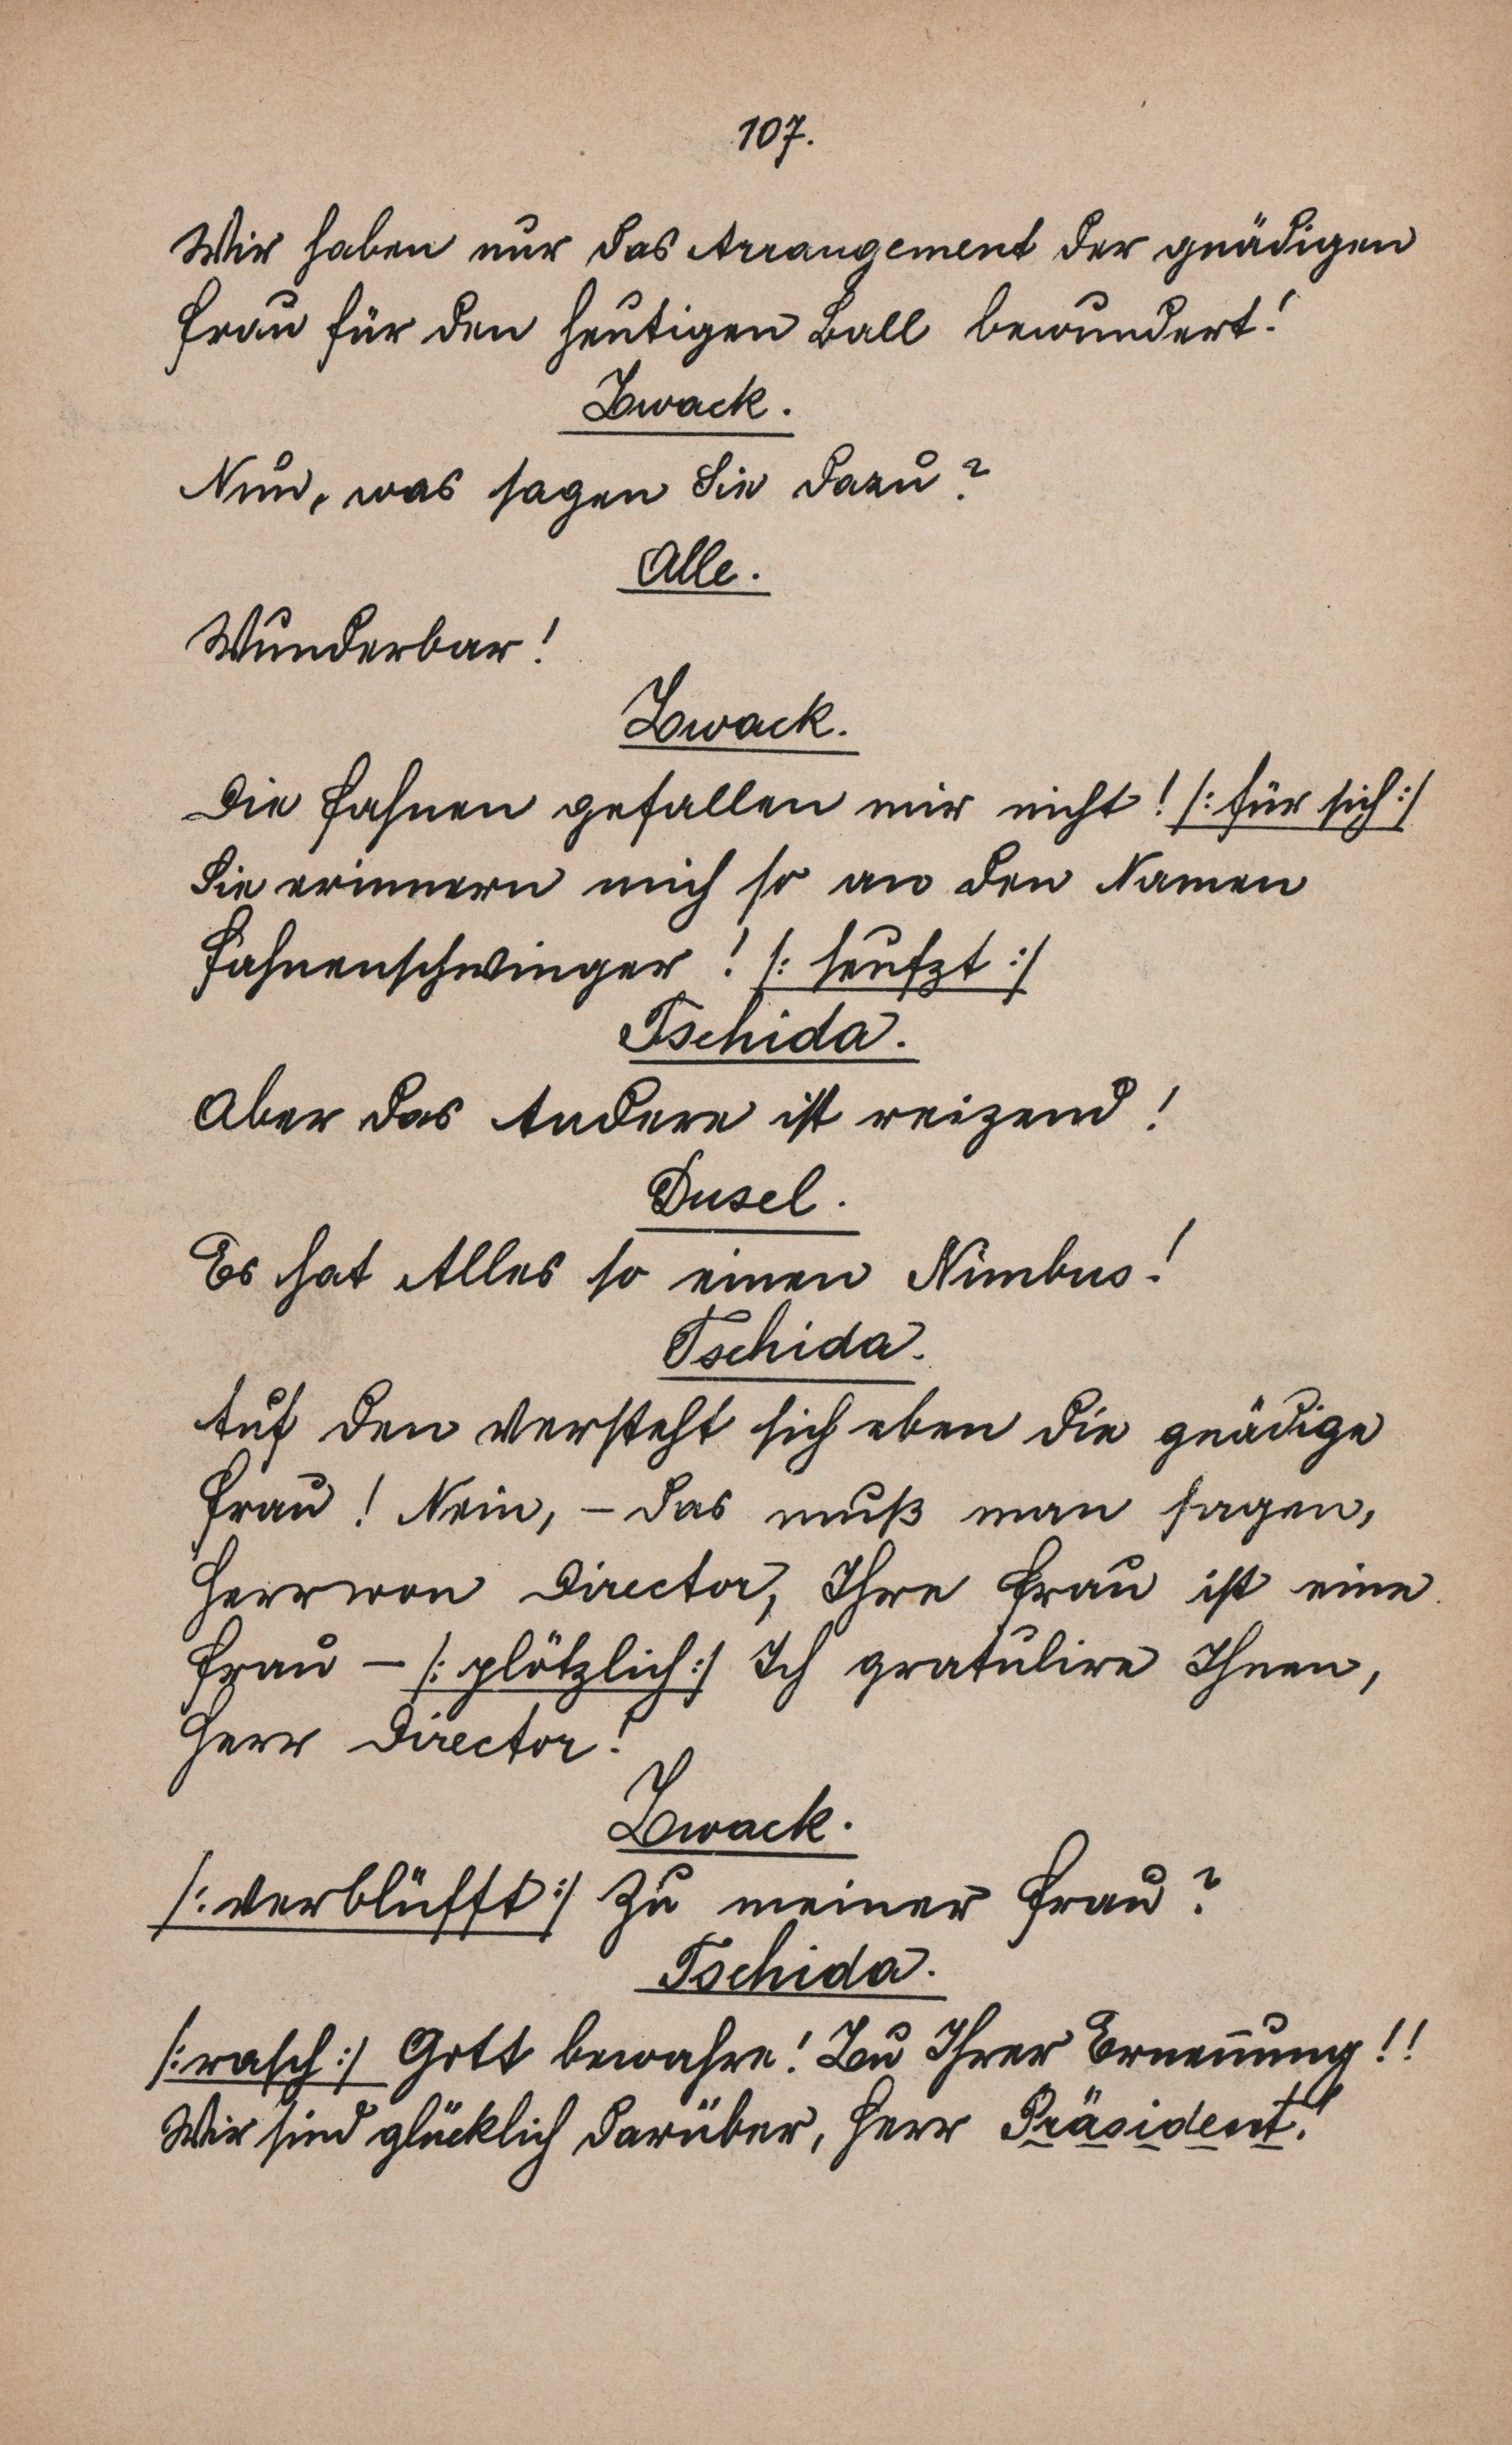 107.
Wir haben nur das Arrangement der gnädigen
Frau für den heutigen Ball bewundert!
Zwack.
Nun, was sagen Sie dazu?
Alle.
Wunderbar!
Zwack.
Die Fahnen gefallen mir nicht! /: für sich :/
Sie erinnern mich so an den Namen
Fahnenschwinger! /: seufzt :/
Tschida.
Aber das Andere ist reizend!
Dusel.
Es hat Alles so einen Nimbus!
Tschida.
Auf den versteht sich eben die gnädige
Frau! Nein, – das muß man sagen,
Herr von Director, Ihre Frau ist eine
Frau – /: plötzlich :/ Ich gratulire Ihnen,
Herr Director!
Zwack.
/: verblüfft :/ Zu meiner Frau?
Tschida.
/: rasch :/ Gott bewahre! Zu Ihrer Ernen̄ung!!
Wir sind glücklich darüber, Herr Präsident!